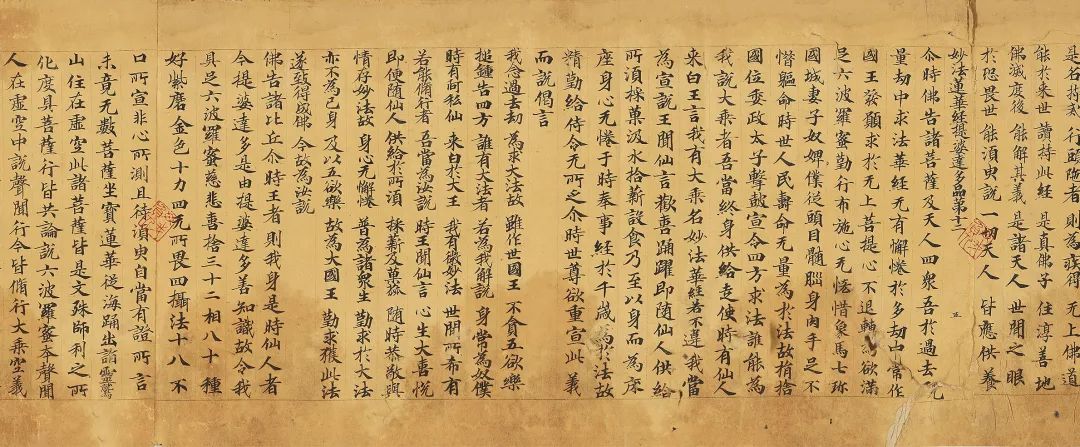 是名持戒 行頭陁者 則為疾得 无上佛道
能於來世 讀持此經 是真佛子 住淳善地
佛滅度後 能解其義 是諸天人 世間之眼
於恐畏世 能須臾說 一切天人 皆應供養
妙法蓮華經提婆達多品第十二
五
尒時佛告諸菩薩及天人四衆吾於過去无
量劫中求法華經无有懈惓於多劫中常作
國王發願求於无上菩提心不退轉為欲滿
足六波羅蜜勤行布施心无悋惜象馬七珎
國城妻子奴婢僕從頭目髓腦身肉手足不
惜軀命時世人民壽命无量為於法故捐捨
國位委政太子擊皷宣令四方求法誰能為
我說大乘者吾當終身供給走使時有仙人
來白王言我有大乘名妙法華經若不違我當
為宣說王聞仙言歡喜踊躍即隨仙人供給
所湏採菓汲水拾薪設食乃至以身而為床
座身心无惓于時奉事經於千歲為於法故
精勤給侍令无所乏尒時世尊欲重宣此義
而說偈言
我念過去劫 為求大法故 雖作世國王 不貪五欲樂
搥鍾告四方 誰有大法者 若為我解說 身當為奴僕
時有阿私仙 來白於大王 我有微妙法 世間所希有
若能脩行者 吾當為汝說 時王聞仙言 心生大喜悅
即便隨仙人 供給於所湏 採薪及菓蓏 隨時恭敬與
情存妙法故 身心无懈惓 普為諸衆生 勤求於大法
亦不為己身 及以五欲樂 故為大國王 勤求獲此法
遂致得成佛 今故為汝說
佛告諸比丘尒時王者則我身是時仙人者
今提婆達多是由提婆達多善知識故令我
具足六波羅蜜慈悲喜捨三十二相八十種
好紫磨金色十力四无所畏四攝法十八不
口所宣非心所測且待湏臾自當有證所言
未竟无數菩薩坐寶蓮華從海踊出詣靈鷲
山住在虛空此諸菩薩皆是文殊師利之所
化度具菩薩行皆共論說六波羅蜜本聲聞
人在虛空中說聲聞行今皆脩行大乘空義